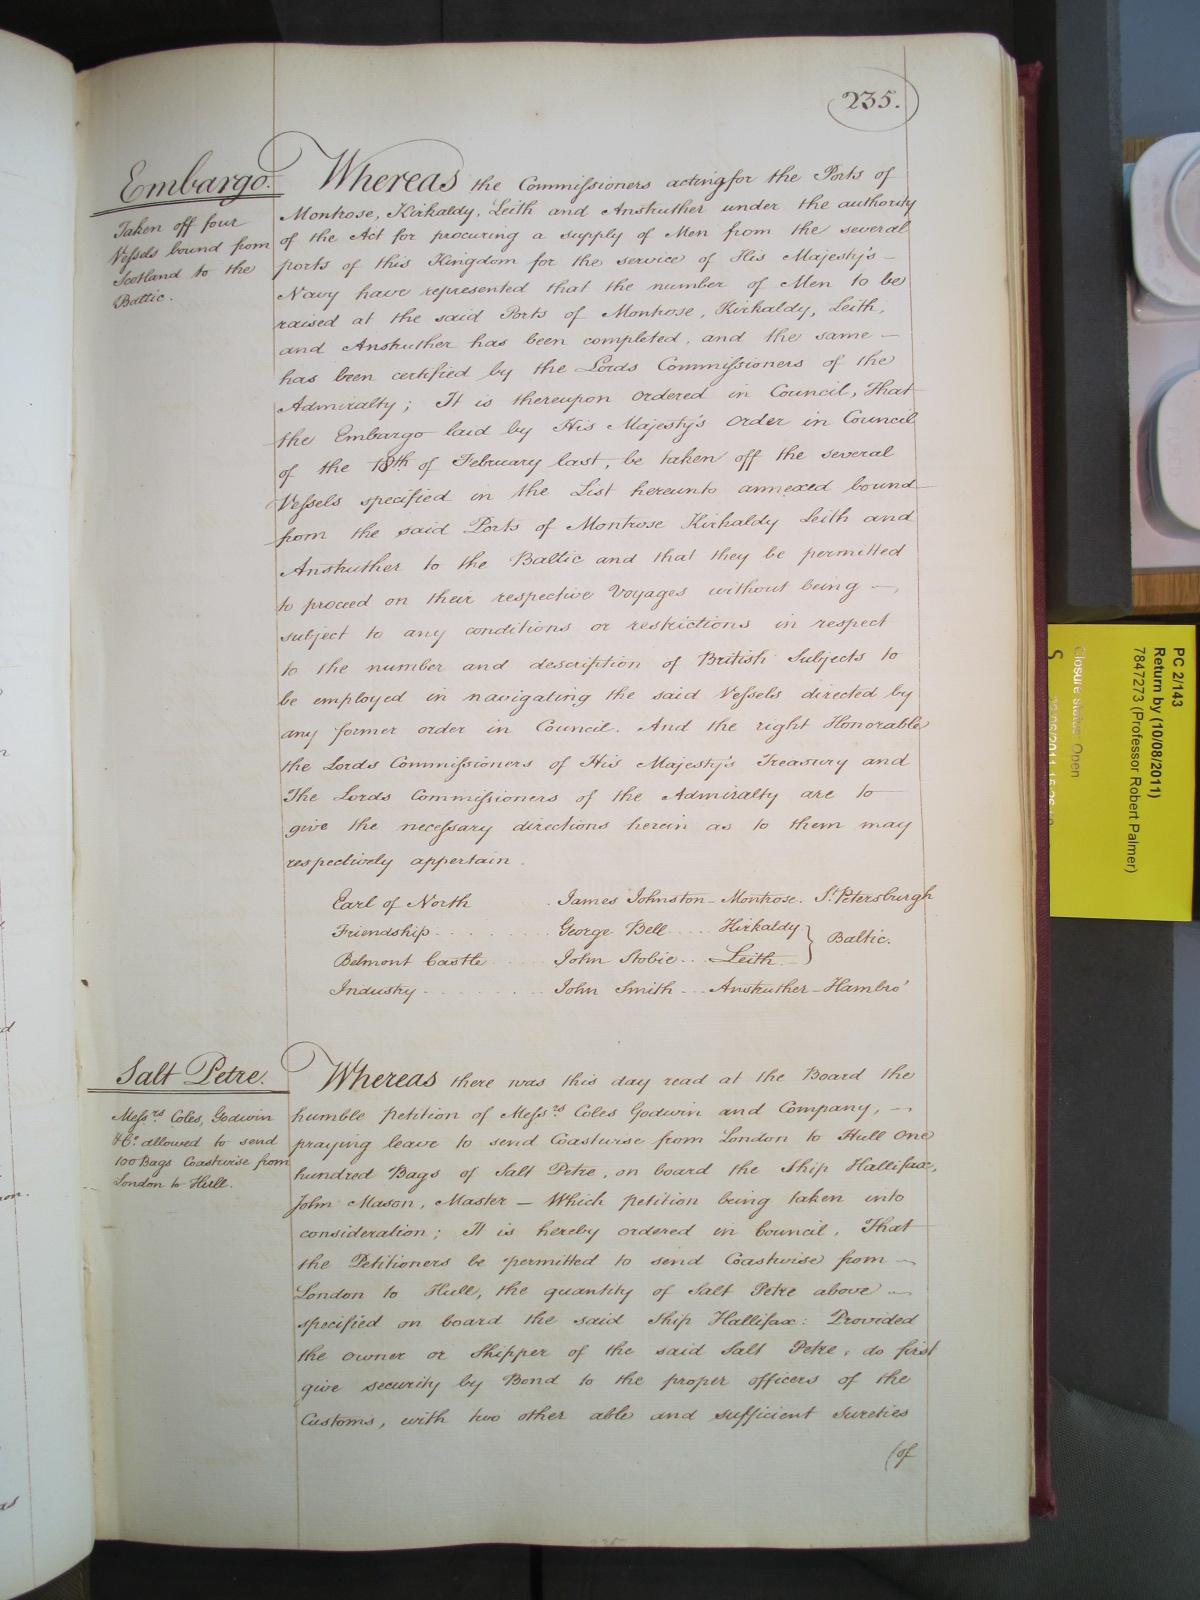 235.
Embargo.
Taken off four
Vessels bound from
Scotland to the
Baltic.
Whereas the Commissioners acting for the Ports of
Montrose, Kirkaldy, Leith and Anstruther under the authority
of the Act for procuring a supply of Men from the several
ports of this Kingdom for the service of His Majesty's
Navy have represented that the number of Men to be
raised at the said Ports of Montrose, Kirkaldy, Leith,
and Anstruther has been completed, and the same
has been certified by the Lords Commissioners of the
Admiralty; It is thereupon ordered in Council, That
the Embargo laid by His Majesty's Order in Council
of the 18th of February last, be taken off the several
Vessels specified in the List hereunto annexed bound
from the said Ports of Montrose Kirkaldy Leith and
Anstruther to the Baltic and that they be permitted
to proceed on their respective Voyages without being
subject to any conditions or restrictions in respect
to the number and description of British Subjects to
be employed in navigating the said Vessels directed by
any former order in Council. And the right Honorable
the Lords Commissioners of His Majesty's Treasury and
The Lords Commissioners of the Admiralty are to
give the necessary directions herein as to them may
respectively appertain.
Earl of North . James Johnston - Montrose. St. Petersburgh
Friendship . . . . . . . . George Bell . . . . Kirkaldy } Baltic.
Belmont Castle . . . . John Stobie . . Leith
Industry . . . . . . . . . John Smith . . . Anstruther - Hambro'
Salt Petre.
Messrs Coles, Godwin
& Co. allowed to send
100 Bags Coastwise from
London to Hull.
Whereas there was this day read at the Board the
humble petition of Messrs Coles Godwin and Company,
praying leave to send Coastwise from London to Hull One
hundred Bags of Salt Petre, on board the Ship Hallifax,
John Mason, Master - Which petition being taken into
consideration; It is hereby ordered in Council, That
the Petitioners be permitted to send Coastwise from
London to Hull, the quantity of Salt Petre above
specified on board the said Ship Hallifax: Provided
the owner or Shipper of the said Salt Petre, do first
give security by Bond to the proper officers of the
Customs, with two other able and sufficient sureties
(of
PC 2/143
Return by (10/08/2011)
7847273 (Professor Robert Palmer)
Closure status: Open
S